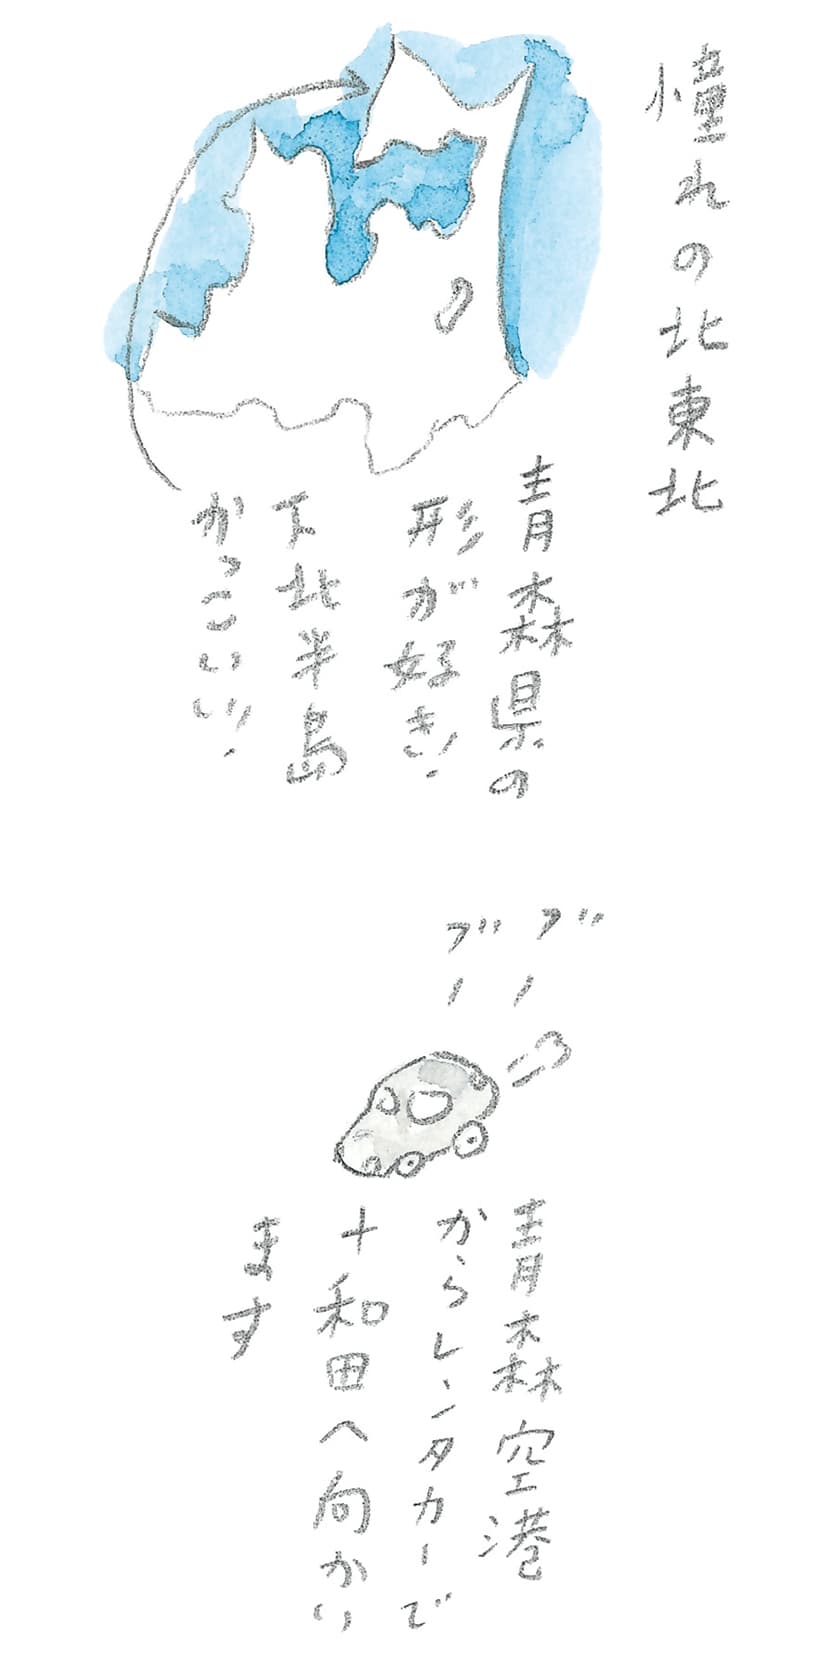 憧れの北東北
青森県の
形が好き!
下北半島
かっこいい!
ブー
ブー
青森空港
からレンタカーで
十和田へ向かい
ます